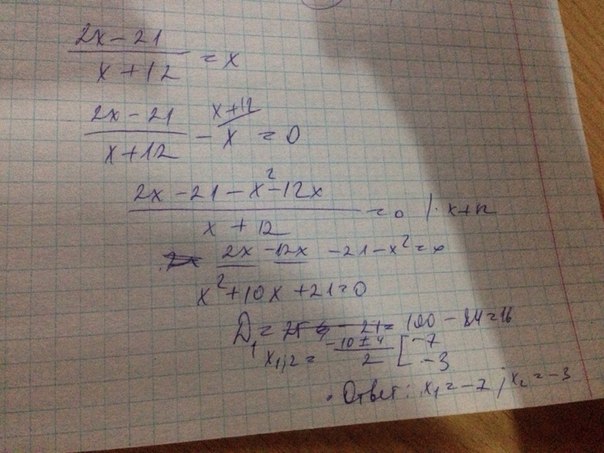 2x - 21 / x + 12 = x
2x - 21 / x + 12 - x = 0 x + 12
2x - 21 - x² - 12x / x + 12 = 0 | · x + 12
2x - 12x - 21 - x² = 0
x² + 10x + 21 = 0
D₁ = = 100 - 84 = 16
x₁,₂ = -10 ± 4 / 2 [ -7
-3
Ответ: x₁ = -7 ; x₂ = -3